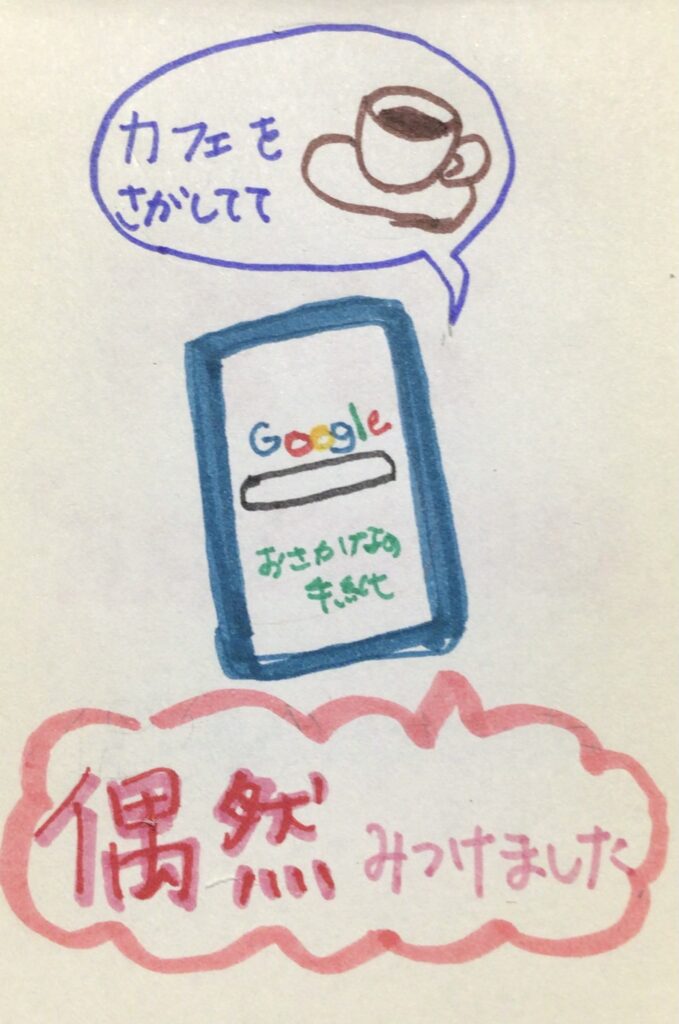 カフェを
さがしてて
Google
おさかけなの
手紙
偶然みつけました